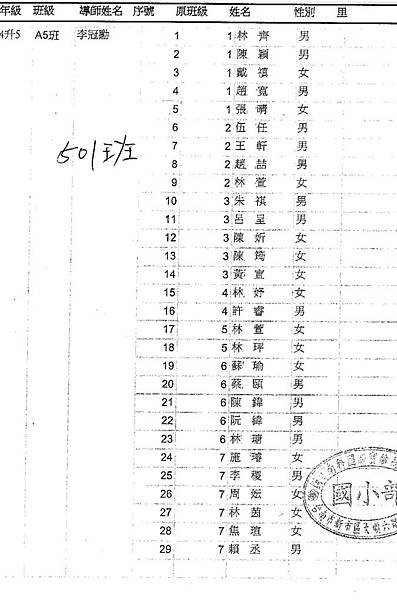 年級 班級 導師姓名 序號 原班級 姓名 性別 里
4升5 A5班 李冠勳 1 1 林 齊 男
2 1 陳 穎 男
3 1 戴 禛 女
4 1 趙 寬 男
5 1 張 晴 女
6 2 伍 任 男
7 2 王 軒 男
8 2 趙 喆 男
9 2 林 萱 女
10 3 朱 祺 男
11 3 呂 呈 男
12 3 陳 妡 女
13 3 陳 筠 女
14 3 黃 宣 女
15 4 林 妤 女
16 4 許 睿 男
17 5 林 萱 女
18 5 林 玶 女
19 6 蘇 瑜 女
20 6 蔡 頤 男
21 6 陳 鋒 男
22 6 阮 緯 男
23 6 林 瑭 男
24 7 施 璿 女
25 7 李 稷 男
26 7 周 妘 女
27 7 林 茵 女
28 7 焦 瑄 女
29 7 賴 丞 男
501班
國小部